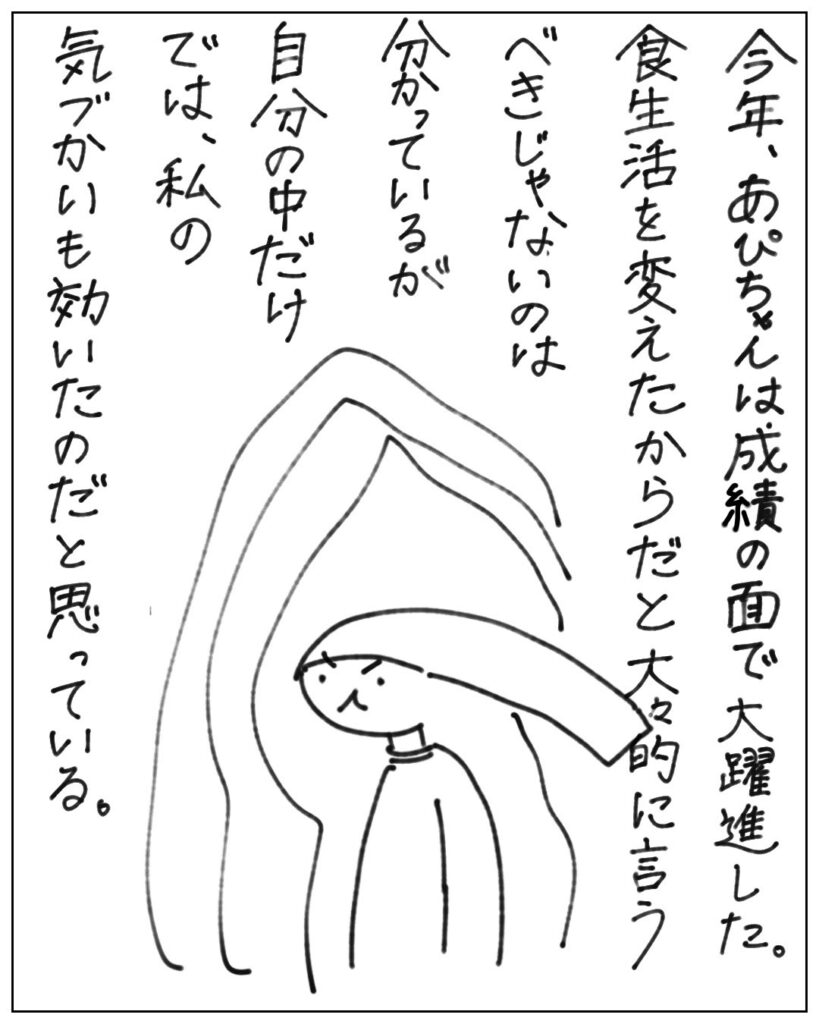 今年、あぴちゃんは、成績の面で大躍進した。
食生活を変えたからだと大々的に言う
べきじゃないのは
分かっているが
自分の中だけ
では、私の
気づかいも効いたのだと思っている。